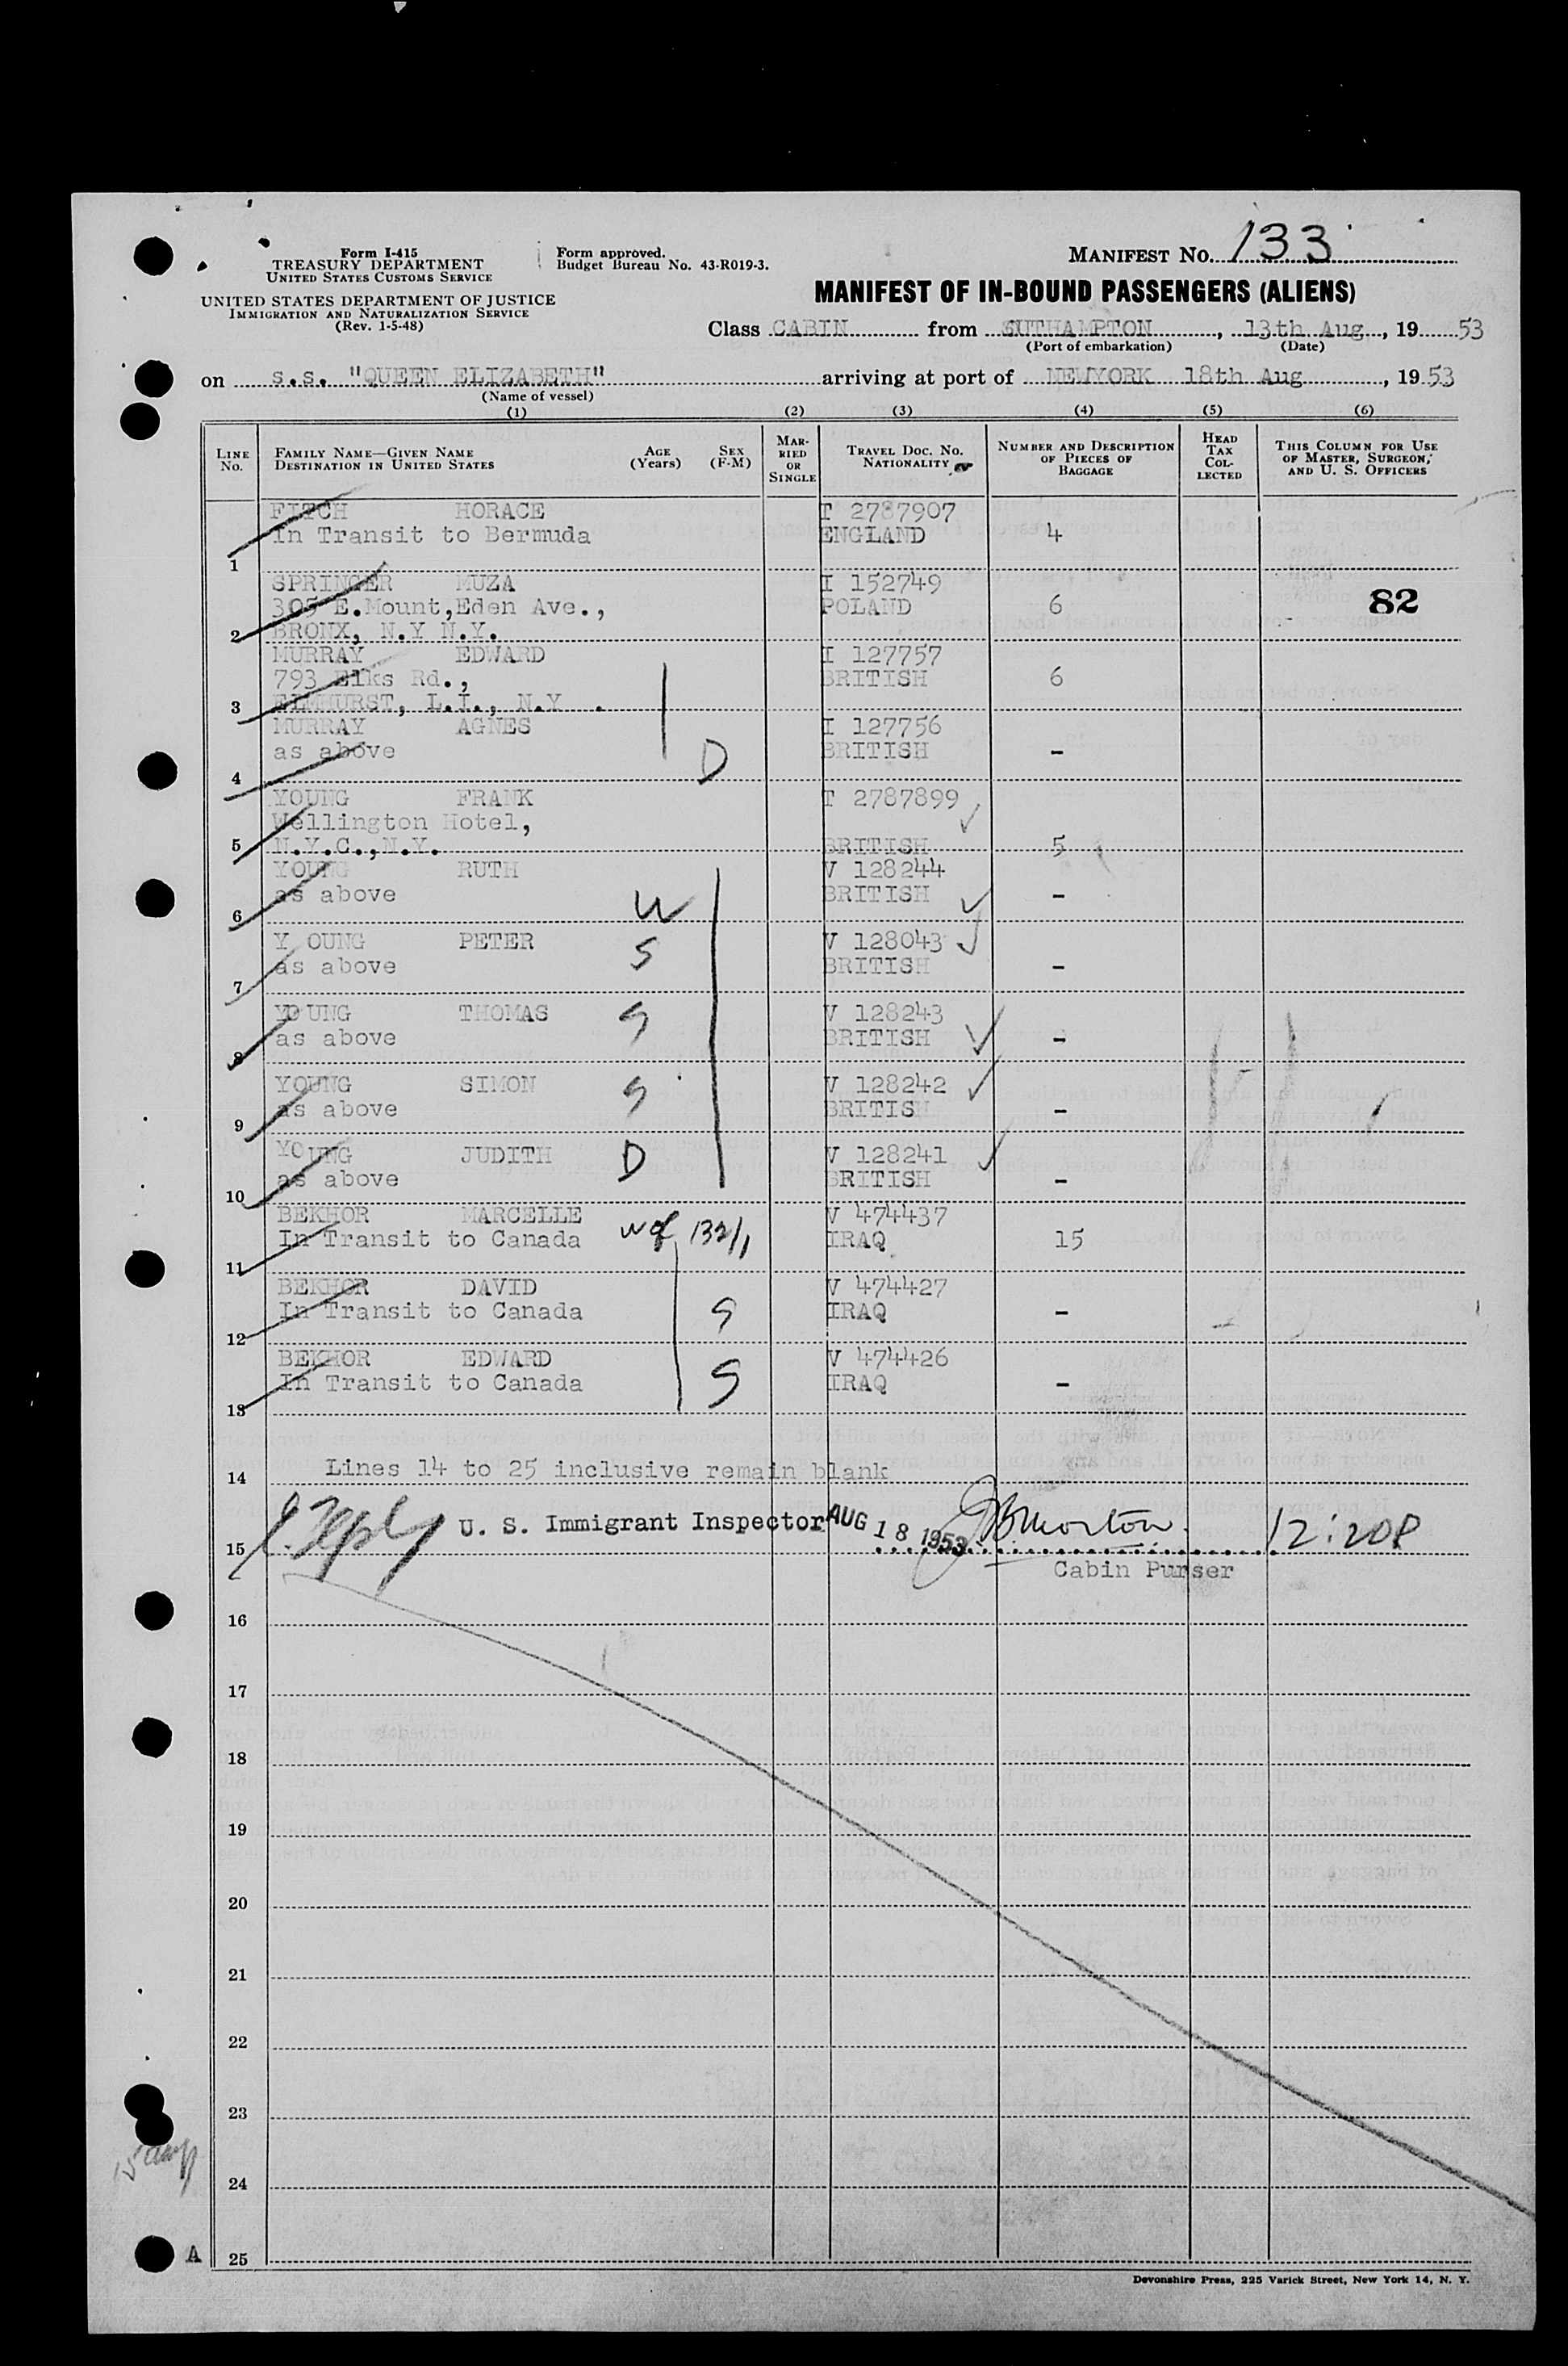 Form I-415
TREASURY DEPARTMENT
UNITED STATES CUSTOMS SERVICE
UNITED STATES DEPARTMENT OF JUSTICE
IMMIGRATION AND NATURALIZATION SERVICE
(Rev. 1-5-48)
Form approved.
Budget Bureau No. 43-R019-3.
MANIFEST NO. 133
MANIFEST OF IN-BOUND PASSENGERS (ALIENS)
Class CABIN from SUTHAMPTON, 13th Aug, 19 53
(Port of embarkation) (Date)
on s.s. "QUEEN ELIZABETH" arriving at port of NEWYORK 18th Aug, 19 53
(Name of vessel)
(1) (2) (3) (4) (5) (6)
LINE NO. FAMILY NAME—GIVEN NAME DESTINATION IN UNITED STATES AGE (Years) SEX (F-M) MARRIED OR SINGLE TRAVEL DOC. NO. NATIONALITY NUMBER AND DESCRIPTION OF PIECES OF BAGGAGE HEAD TAX COLLECTED THIS COLUMN FOR USE OF MASTER, SURGEON, AND U. S. OFFICERS
FITCH HORACE T 2787907
In Transit to Bermuda ENGLAND 4
1
SPRINGER MUZA I 152749
305 E.Mount,Eden Ave., POLAND 6 82
2 BRONX, N.Y N.Y.
MURRAY EDWARD I 127757
793 Elks Rd., BRITISH 6
3 ELMHURST, L.I., N.Y .
MURRAY AGNES I 127756
as above D BRITISH -
4
YOUNG FRANK T 2787899
Wellington Hotel,
5 N.Y.C.,N.Y. BRITISH 5
YOUNG RUTH V 128244
as above W BRITISH -
6
Y OUNG PETER S V 128043
as above BRITISH -
7
YOUNG THOMAS S V 128243
as above BRITISH -
8
YOUNG SIMON S V 128242
as above BRITISH -
9
YOUNG JUDITH D V 128241
as above BRITISH -
10
BEKHOR MARCELLE V 474437
In Transit to Canada w of 132/1 IRAQ 15
11
BEKHOR DAVID V 474427
In Transit to Canada S IRAQ -
12
BEKHOR EDWARD V 474426
In Transit to Canada S IRAQ -
13
14 Lines 14 to 25 inclusive remain blank
U. S. Immigrant Inspector AUG 18 1953 JB Morton. 12:20P
15
Cabin Purser
16
17
18
19
20
21
22
23
24
A 25
Devonshire Press, 225 Varick Street, New York 14, N. Y.